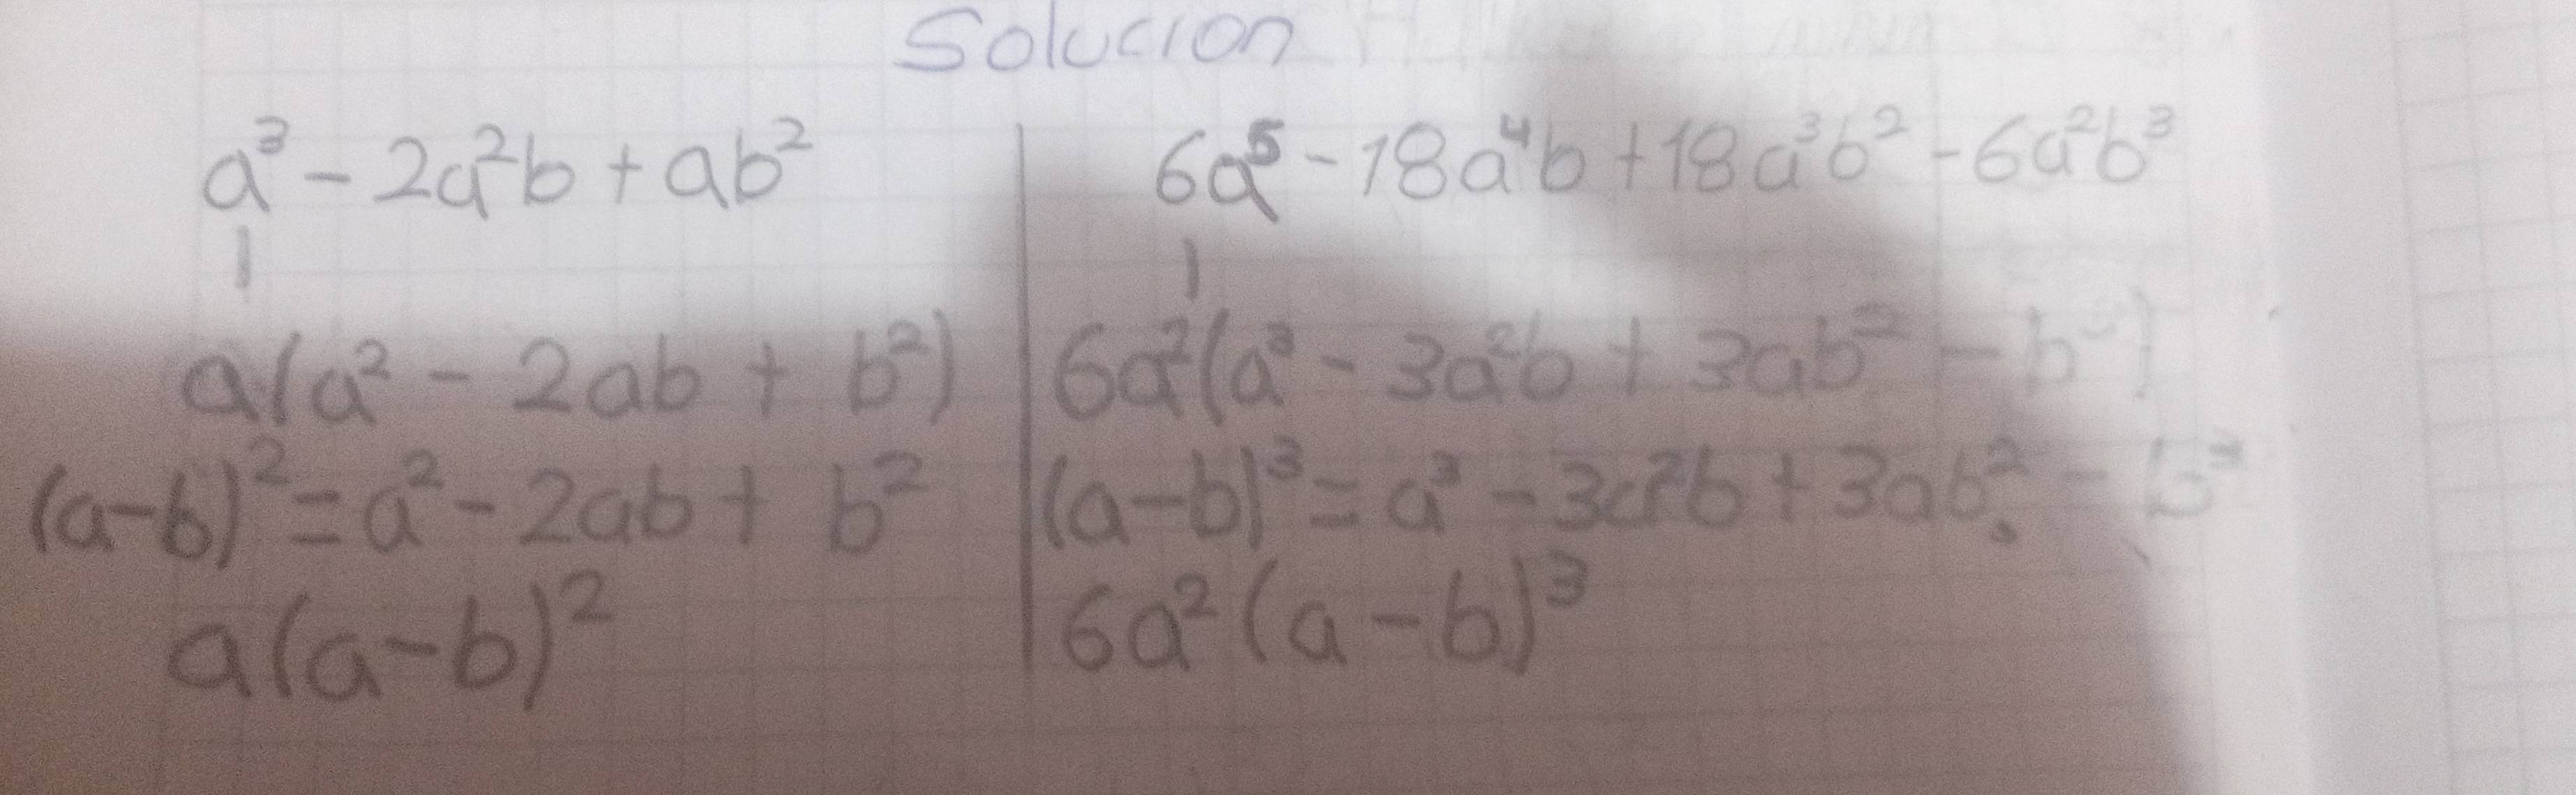 Solucion
a³ - 2a²b + ab²
|
a(a² - 2ab + b²)
(a-b)² = a² - 2ab + b²
a(a-b)²
6a⁵ - 18a⁴b + 18a³b² - 6a²b³
|
6a²(a³ - 3a²b + 3ab² - b³)
(a-b)³ = a³ - 3a²b + 3ab² - b³
6a²(a-b)³